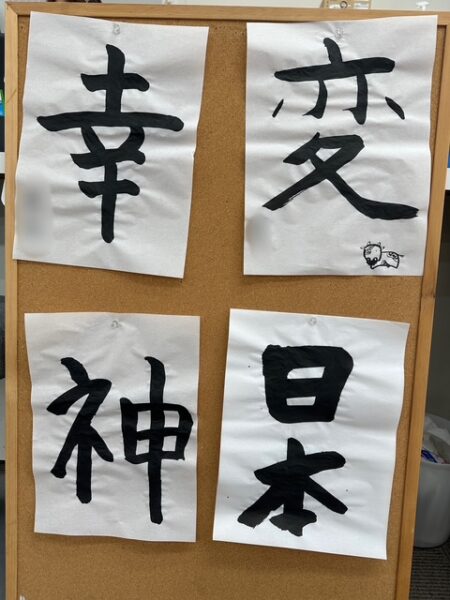 幸
変
神
日本